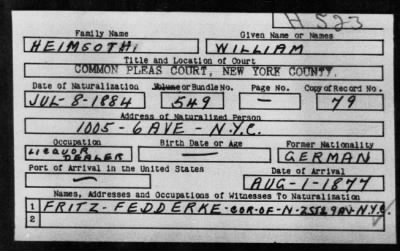 H 523
Family Name Given Name or Names
HEIMSOTH. WILLIAM
Title and Location of Court
COMMON PLEAS COURT, NEW YORK COUNTY.
Date of Naturalization Volume or Bundle No. Page No. Copy of Record No.
JUL-8-1884 549 — 79
Address of Naturalized Person
1005-6 AVE - N.Y.C.
Occupation Birth Date or Age Former Nationality
LICQUOR DEALER — GERMAN
Port of Arrival in the United States Date of Arrival
— AUG-1-1877
Names, Addresses and Occupations of Witnesses To Naturalization
1 FRITZ-FEDDERKE-COR-OF-N-25St. 9AV-N.Y.C.
2